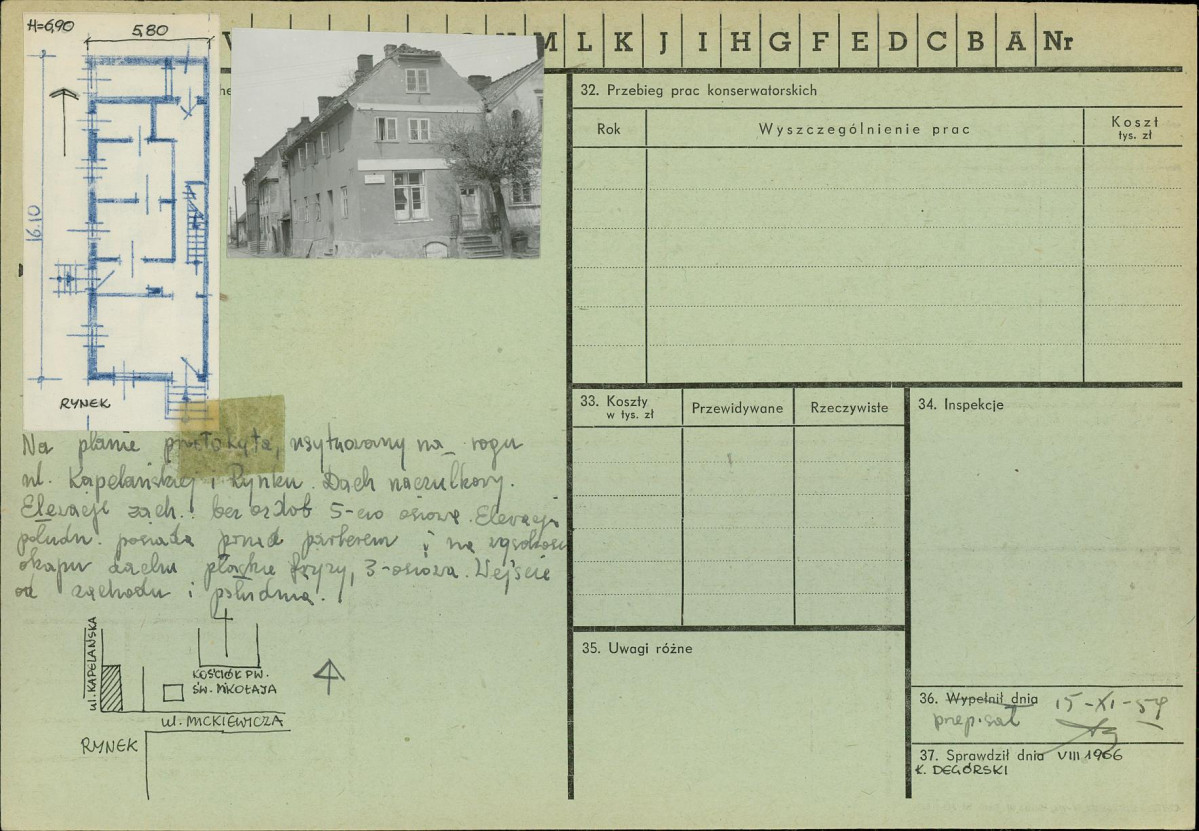 H=6,90
5,80
16.10
RYNEK
M L K J I H G F E D C B A Nr
32. Przebieg prac konserwatorskich
Rok
Wyszczególnienie prac
Koszt
tys. zł
33. Koszty
w tys. zł
Przewidywane
Rzeczywiste
34. Inspekcje
Na planie prostokąta, usytuowany na rogu
ul. Kapelańskiej i Rynku. Dach naczulkowy.
Elewacje zach. bez ozdób 5-cio osiowe. Elewacja
połudn. posiada ponad parterem i na wysokości
okapu dachu płaskie fryzy, 3-osiowa. Wejście
od zachodu i południa.
ul. KAPELAŃSKA
KOŚCIÓŁ PW.
ŚW. MIKOŁAJA
ul. MICKIEWICZA
RYNEK
35. Uwagi różne
36. Wypełnił dnia 15-XI-59
przepisał
37. Sprawdził dnia VIII 1966
K. DEGÓRSKI